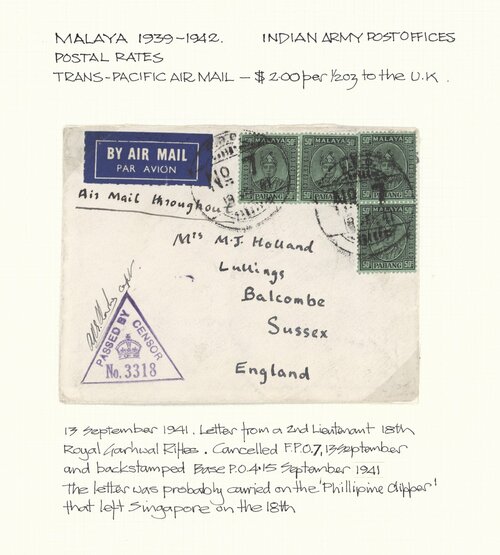 MALAYA 1939-1942. INDIAN ARMY POST OFFICES
POSTAL RATES
TRANS-PACIFIC AIR MAIL - $2.00 per 1/2 oz to the U.K.
BY AIR MAIL
PAR AVION
50c MALAYA 50c
PAHANG
50c MALAYA 50c
PAHANG
50c MALAYA 50c
50c PAHANG 50c
Air Mail throughout
Mrs M.J. Holland
Lullings
Balcombe
Sussex
England
PASSED BY CENSOR
No. 3318
13 September 1941. Letter from a 2nd Lieutenant 18th
Royal Garhwal Rifles. Cancelled F.P.O.7, 13 September
and backstamped Base P.O.4. 15 September 1941
The letter was probably carried on the 'Phillipine Clipper'
that left Singapore on the 18th